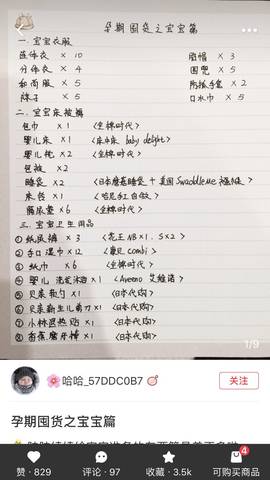 孕期囤货之宝宝篇
一. 宝宝衣服
连体衣 × 10 胎帽 × 3
分体衣 × 4 围兜 × 5
和尚服 × 5 防抓手套 × 2
袜子 × 5 口水巾 × 5
二. 宝宝床被褥
包巾 ×1 <全棉时代>
婴儿床 ×1 <床中床 baby delight>
婴儿枕 ×2 <全棉时代>
包被 ×2
睡袋 ×2
床铃 ×1
隔尿垫 ×6 <全棉时代>
三. 宝宝卫生用品
① 纸尿裤 × 3 <花王 NB×1. S×2>
② 手口湿巾 ×12 <康贝 combi>
③ 纸巾 × 6 <全棉时代>
④ 婴儿洗发沐浴 ×1 <Aveeno 艾维诺>
⑤ 贝亲 ×1 <日本代购>
⑥ 贝亲新生儿剪刀 ×1 <日本代购>
⑦ 小林退热贴 ×1 <日本代购>
⑧ ×1 <日本代购>
1/9
🌸哈哈_57DDC0B7
关注
孕期囤货之宝宝篇
赞 · 829
评论 · 97
收藏 · 3.5k
4
可购买商品